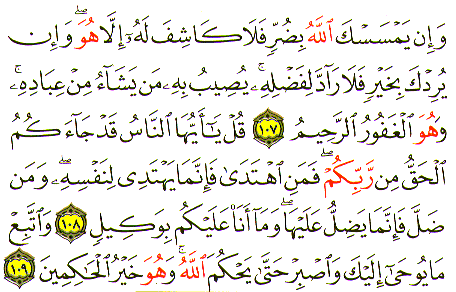 وَإِن يَمۡسَسۡكَ ٱللَّهُ بِضُرّٖ فَلَا كَاشِفَ لَهُۥٓ إِلَّا هُوَۖ وَإِن
يُرِدۡكَ بِخَيۡرٖ فَلَا رَآدَّ لِفَضۡلِهِۦۚ يُصِيبُ بِهِۦ مَن يَشَآءُ مِنۡ عِبَادِهِۦۚ
وَهُوَ ٱلۡغَفُورُ ٱلرَّحِيمُ ١٠٧ قُلۡ يَٰٓأَيُّهَا ٱلنَّاسُ قَدۡ جَآءَكُمُ
ٱلۡحَقُّ مِن رَّبِّكُمۡۖ فَمَنِ ٱهۡتَدَىٰ فَإِنَّمَا يَهۡتَدِي لِنَفۡسِهِۦۖ وَمَن
ضَلَّ فَإِنَّمَا يَضِلُّ عَلَيۡهَاۖ وَمَآ أَنَا۠ عَلَيۡكُم بِوَكِيلٖ ١٠٨ وَٱتَّبِعۡ
مَا يُوحَىٰٓ إِلَيۡكَ وَٱصۡبِرۡ حَتَّىٰ يَحۡكُمَ ٱللَّهُۚ وَهُوَ خَيۡرُ ٱلۡحَٰكِمِينَ ١٠٩